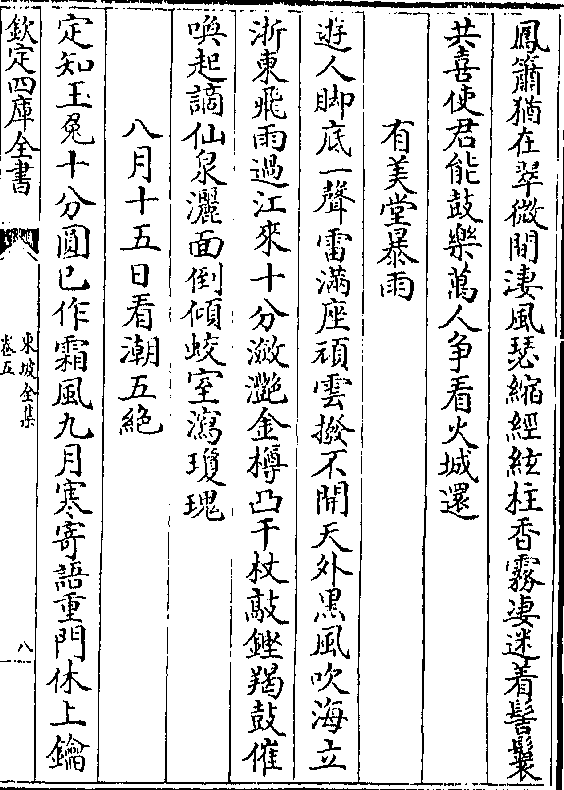 鳳簫猶在翠微間淒風瑟縮經絃柱香霧凄迷着髻鬟
共喜使君能鼓樂萬人争看火城還
有美堂暴雨
遊人脚底一聲雷滿座頑雲撥不開天外黒風吹海立
浙東飛雨過江來十分瀲灔金樽凸千杖敲鏗羯鼓催
喚起謫仙泉灑面倒傾蛟室瀉瓊瑰
八月十五日看潮五絶
定知玉兔十分圓已作霜風九月寒寄語重門休上鑰
欽定四庫全書
東坡全集
卷五
八